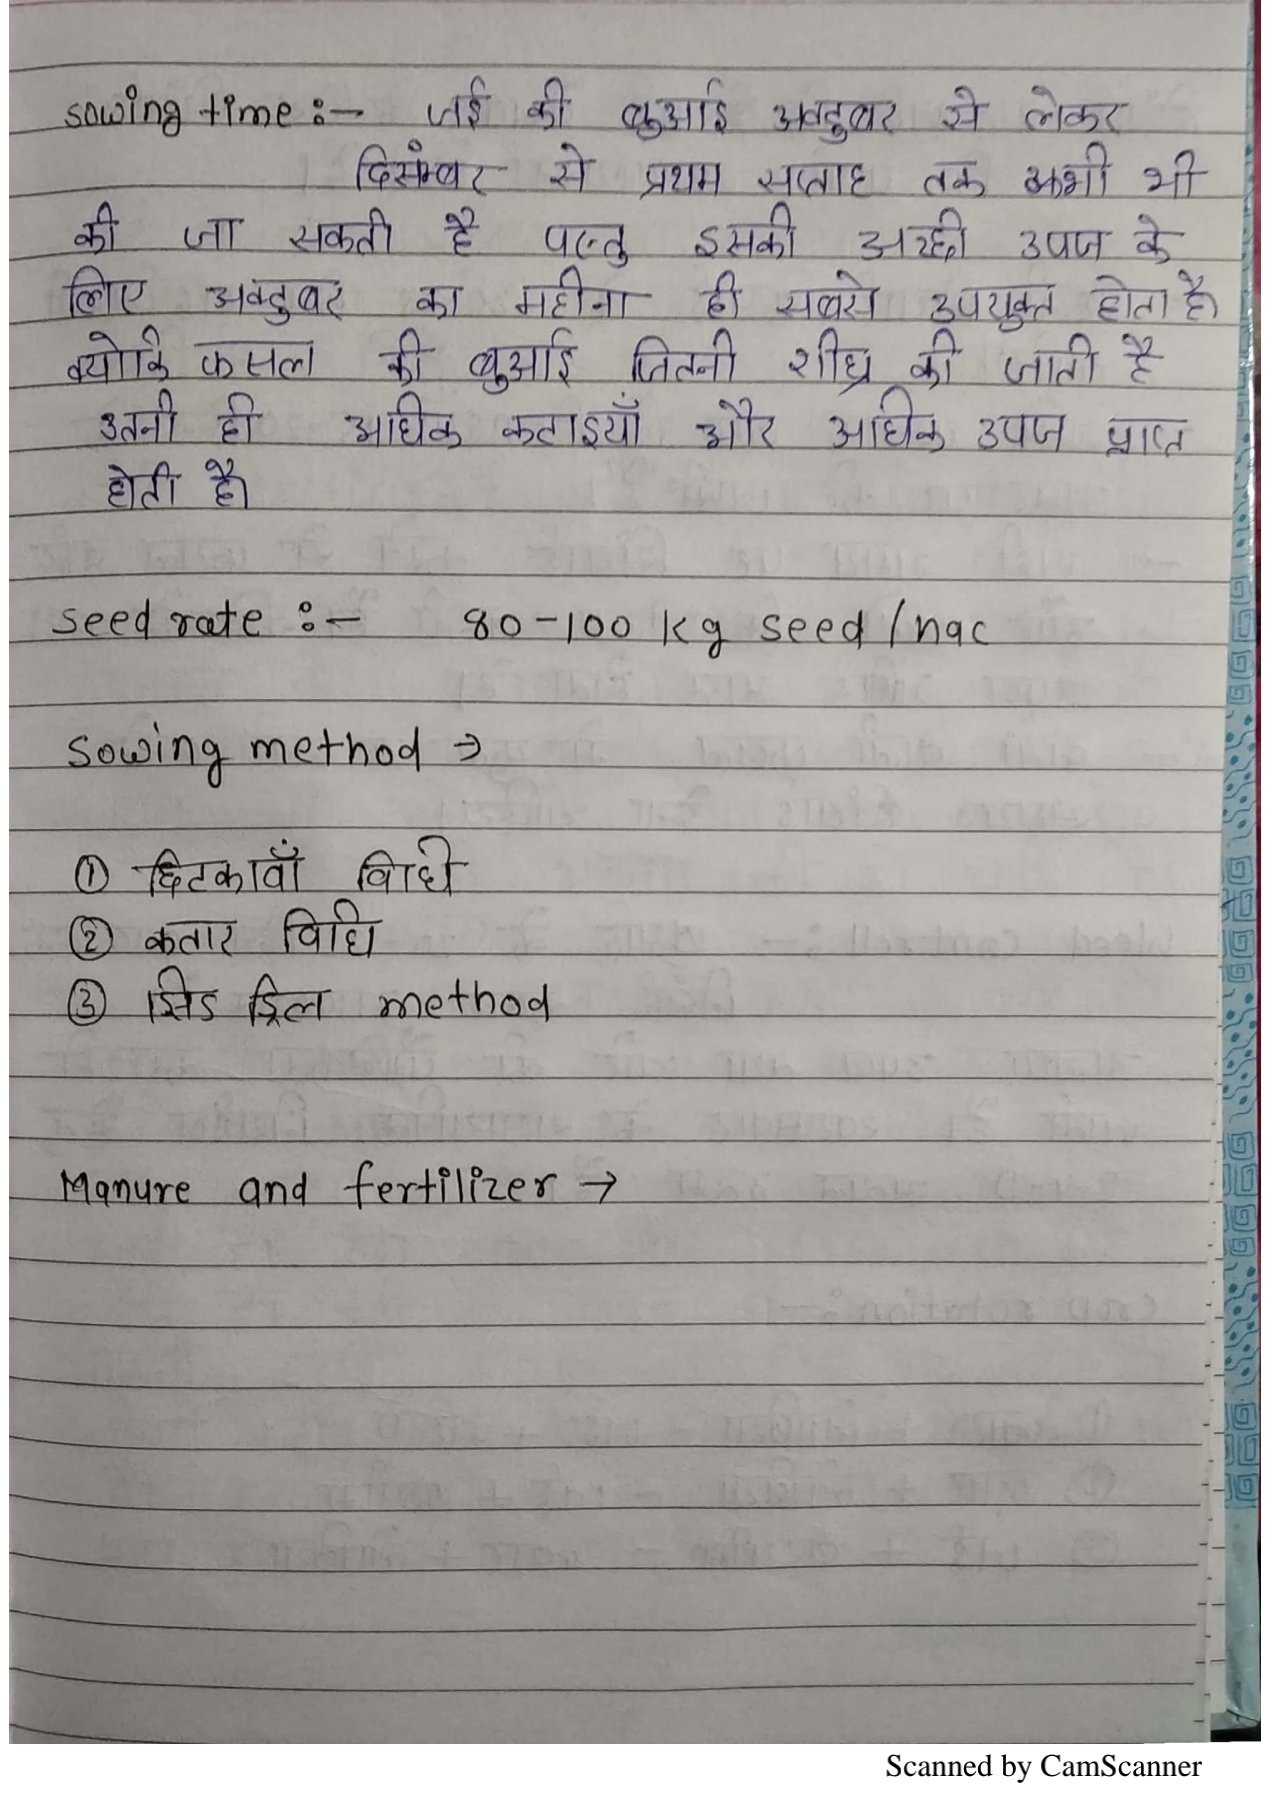 Sowing time :- जई की बुआई अक्टुबर से लेकर
दिसम्बर से प्रथम सप्ताह तक कभी भी
की जा सकती है परन्तु इसकी अच्छी उपज के
लिए अक्टुबर का महीना ही सबसे उपयुक्त होता है।
क्योकि फसल की बुआई जितनी शीघ्र की जाती है
उतनी ही अधिक कटाइयाँ और अधिक उपज प्राप्त
होती है।
seed rate :- 80-100 kg seed / hac
Sowing method →
① छिटकावाँ विधि
② कतार विधि
③ सिड ड्रिल method
Manure and fertilizer →
Scanned by CamScanner